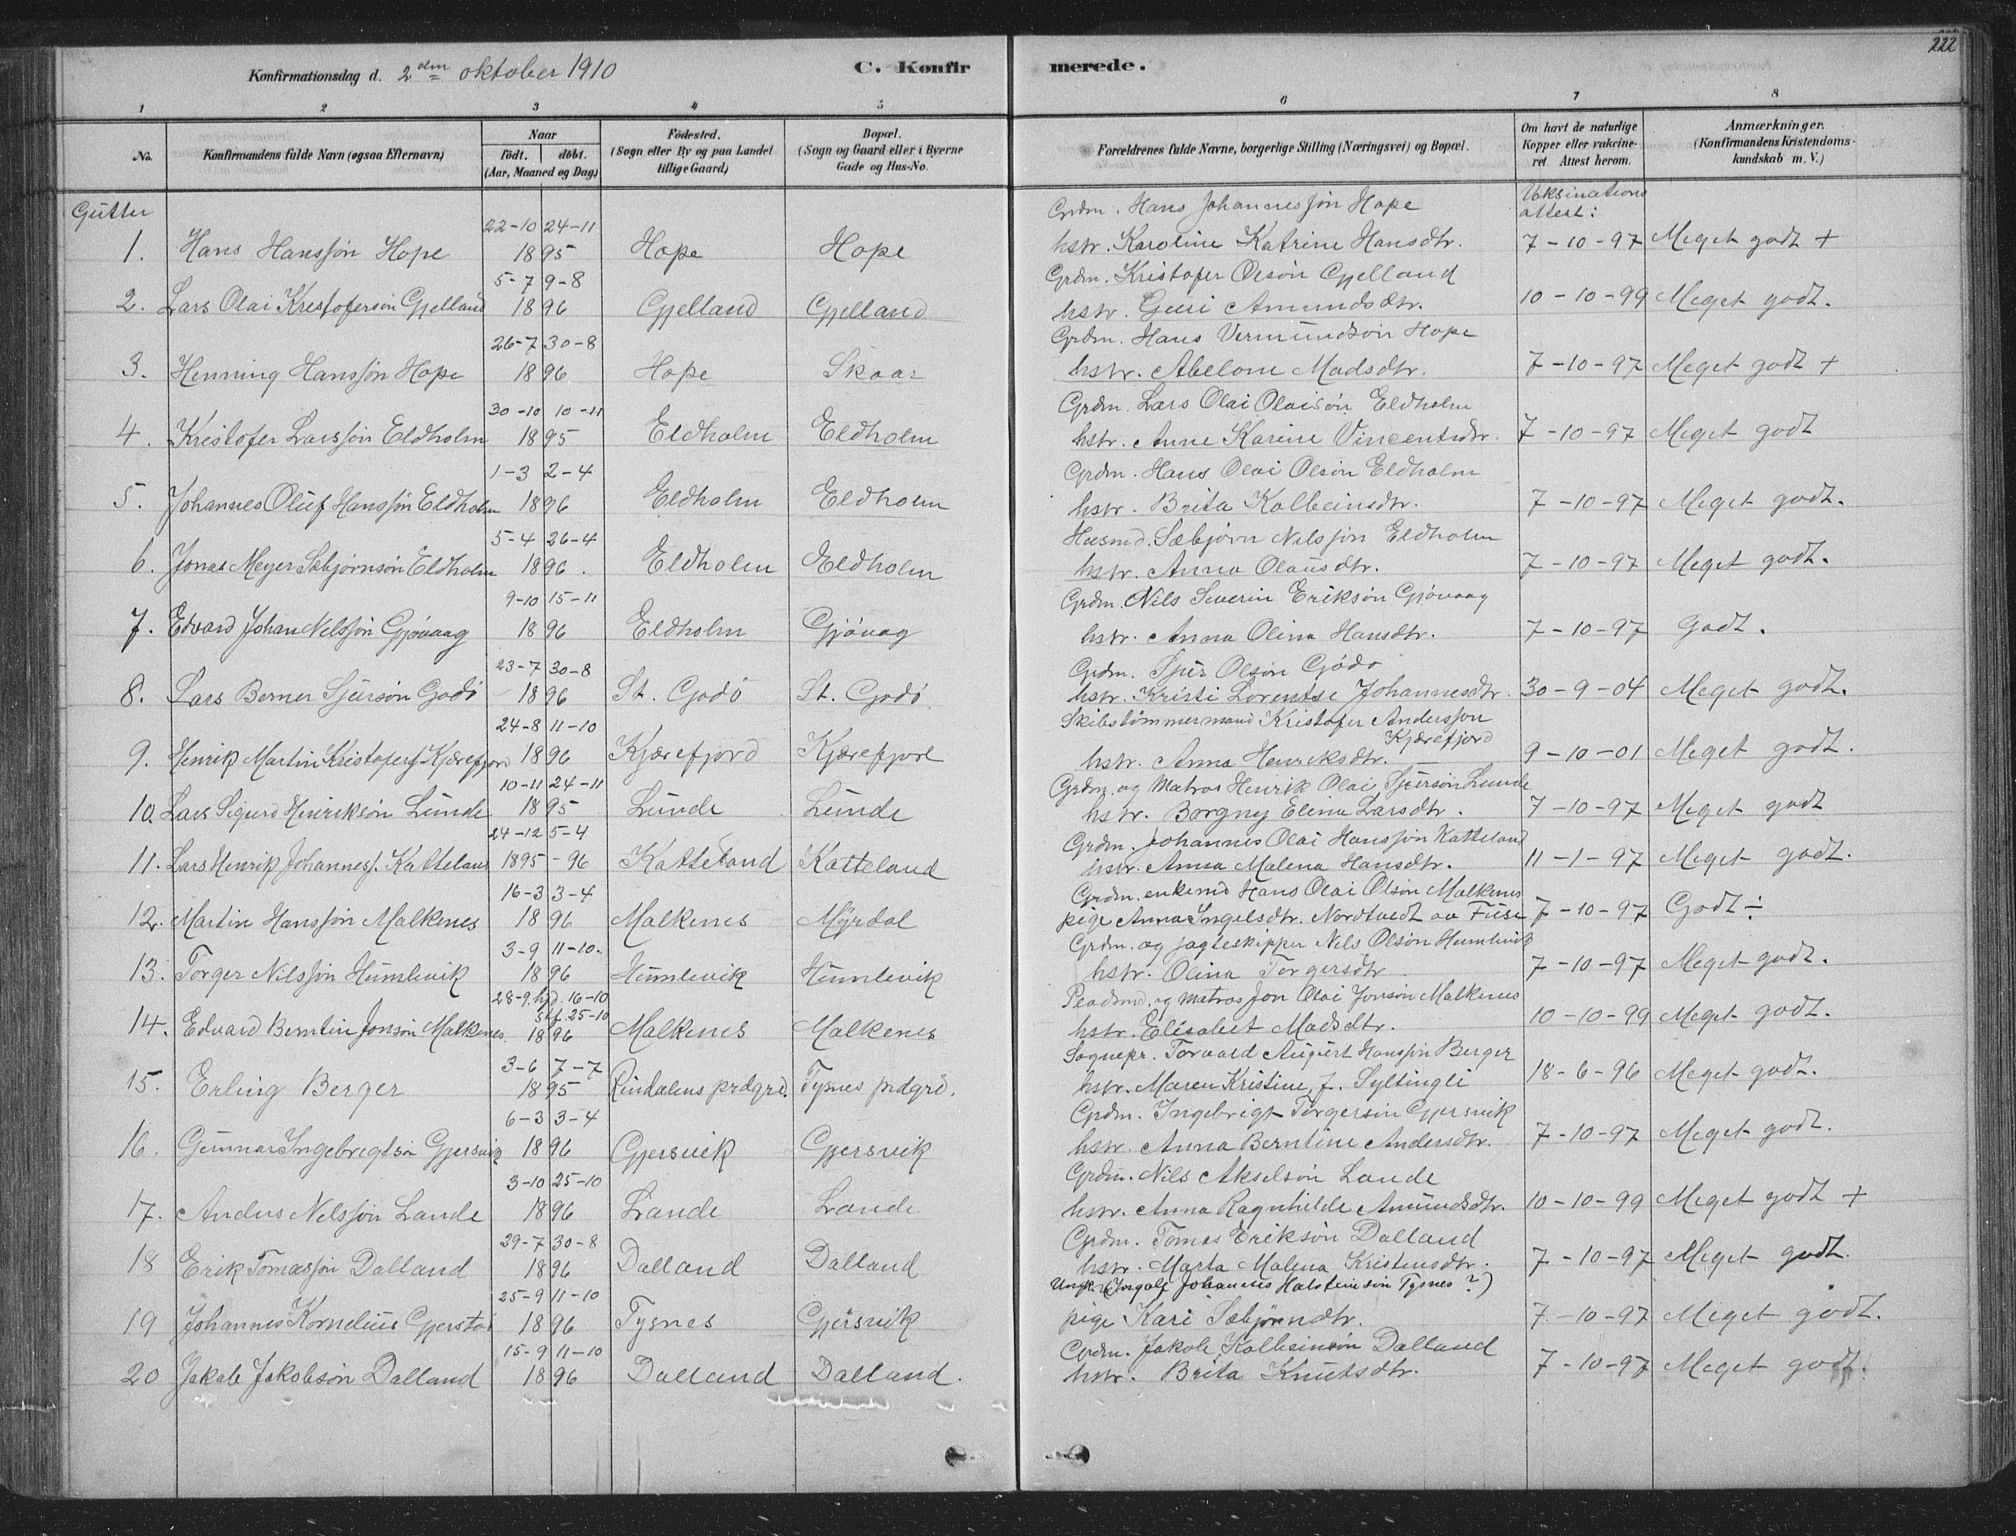 222
Konfirmationsdag d. 2den oktober 1910 C. Konfirmerede.
1 2 3 4 5 6 7 8
No. Konfirmandens fulde Navn (ogsaa Efternavn) Naar födt. döbt. (Aar, Maaned og Dag) Födested. (Sogn eller By og paa Landet tillige Gaard) Bopæl. (Sogn og Gaard eller i Byerne Gade og Hus-No. Forældrenes fulde Navne, borgerlige Stilling (Næringsvei) og Bopæl. Om havt de naturlige Kopper eller vakcineret. Attest herom. Anmærkninger. (Konfirmandens Kristendomskundskab m. V.)
Gutter 22-10 24-11 Grdm. Hans Johannessøn Hope Vaksinations attest:
1. Hans Hanssøn Hope 1895 Hope Hope hstr. Karoline Katrine Hansdtr. 7-10-97 Meget godt +
5-7 9-8 Grdm. Kristofer Olsøn Gjelland
2. Lars Olai Kristofersøn Gjelland 1896 Gjelland Gjelland hstr. Guri Amundsdtr. 10-10-99 Meget godt.
26-7 30-8 Grdm. Hans Vermundsøn Hope
3. Henning Hanssøn Hope 1896 Hope Skaar hstr. Abelone Madsdtr. 7-10-97 Meget godt +
30-10 10-11 Grdm. Lars Olai Olaisøn Eldholm
4. Kristofer Larssøn Eldholm 1895 Eldholm Eldholm hstr. Anne Karine Vincentsdtr. 7-10-97 Meget godt
1-3 2-4 Grdm. Hans Olai Olsøn Eldholm
5. Johannes Oluf Hanssøn Eldholm 1896 Eldholm Eldholm hstr. Brita Kolbeinsdtr. 7-10-97 Meget godt.
5-4 26-4 Husmd. Sæbjørn Nilssøn Eldholm
6. Jonas Meyer Sæbjørnsøn Eldholm 1896. Eldholm Eldholm hstr. Anna Olausdtr. 7-10-97 Meget godt.
9-10 15-11 Grdm. Nils Severin Eriksøn Gjøvaag
7. Edvard Johan Nilssøn Gjøvaag 1896 Eldholm Gjøvag hstr. Anna Olina Hansdtr. 7-10-97 Godt.
23-7 30-8 Grdm. Sjur Olsøn Godø
8. Lars Berner Sjursøn Godø 1896 St. Godø St. Godø. hstr. Kristi Lorentse Johannesdtr. 30-9-04 Meget godt.
24-8 11-10 Skibstømmermand Kristofer Anderssøn Kjærefjord
9. Henrik Martin Kristofers. Kjærefjord 1896 Kjærefjord Kjærefjord hstr. Anna Henriksdtr. 9-10-01 Meget godt.
10-11 24-11 Grdm. og Matros Henrik Olai Sjursøn Lunde
10. Lars Sigurd Henriksøn Lunde 1895 Lunde Lunde hstr. Borgny Elena Larsdtr. 7-10-97 Meget godt
24-12 5-4 Grdm. Johannes Olai Hanssøn Katteland
11. Lars Henrik Johannes. Katteland 1895-96 Katteland Katteland hstr. Anna Malena Hansdtr. 11-1-97 Meget godt.
16-3 3-4 Grdm. enkemd Hans Olai Olsøn Malkenes
12. Martin Hanssøn Malkenes 1896 Malkenes Myrdal pige Anna Ingelsdtr. Nordtvedt av Fuse 7-10-97 Godt ÷
3-9 11-10. Grdm. og jagteskipper Nils Olsøn Humlevik
13. Torger Nilssøn Humlevik 1896 Humlevik Humlevik hstr. Olina Torgersdtr. 7-10-97 Meget godt.
28-9. hjd. 16-10 stf. 25-10 Pladsmd. og Matros Jon Olai Jonsøn Malkenes
14. Edvard Berntin Jonsøn Malkenes. 1896 Malkenes Malkenes hstr. Elisabet Madsdtr. 10-10-99 Meget godt.
3-6 7-7 Sognepr. Torvald August Hanssøn Berger
15. Erling Berger 1895 Rindalens prdgrd. Tysnes prdgrd. hstr. Maren Kristine f. Syltingli 18-6-96 Meget godt.
6-3 3-4 Grdm. Ingebrigt Torgersøn Gjersvik
16. Gunnar Ingebrigtsøn Gjersvik 1896 Gjersvik Gjersvik hstr. Anna Berntine Andersdtr. 7-10-97 Meget godt.
3-10 25-10 Grdm. Nils Akselsøn Lande
17. Anders Nilssøn Lande 1896 Lande Lande hstr. Anna Ragnhilde Amundsdtr. 10-10-99 Meget godt +
29-7 30-8 Grdm. Tomas Eriksøn Dalland
18 Erik Tomassøn Dalland 1896 Dalland Dalland hstr. Marta Malena Kristensdtr. 7-10-97 Meget godt.
25-9 11-10 Ungk. (Ingolf Johannes Halsteinsøn Tysnes?)
19 Johannes Kornelius Gjerstad 1896 Tysnes Gjersvik pige Kari Sæbjørndtr. 7-10-97 Meget godt.
15-9 11-10 Grdm. Jakob Kolbeinsøn Dalland
20 Jakob Jakobsøn Dalland 1896 Dalland Dalland. hstr. Brita Knutsdtr. 7-10-97 Meget godt.